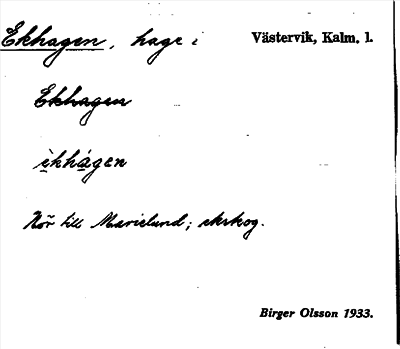 Ekhagen, hage i Västervik, Kalm. l.
Ekhagen
è̱khá̱gen
Hör till Marielund; ekskog.
Birger Olsson 1933.